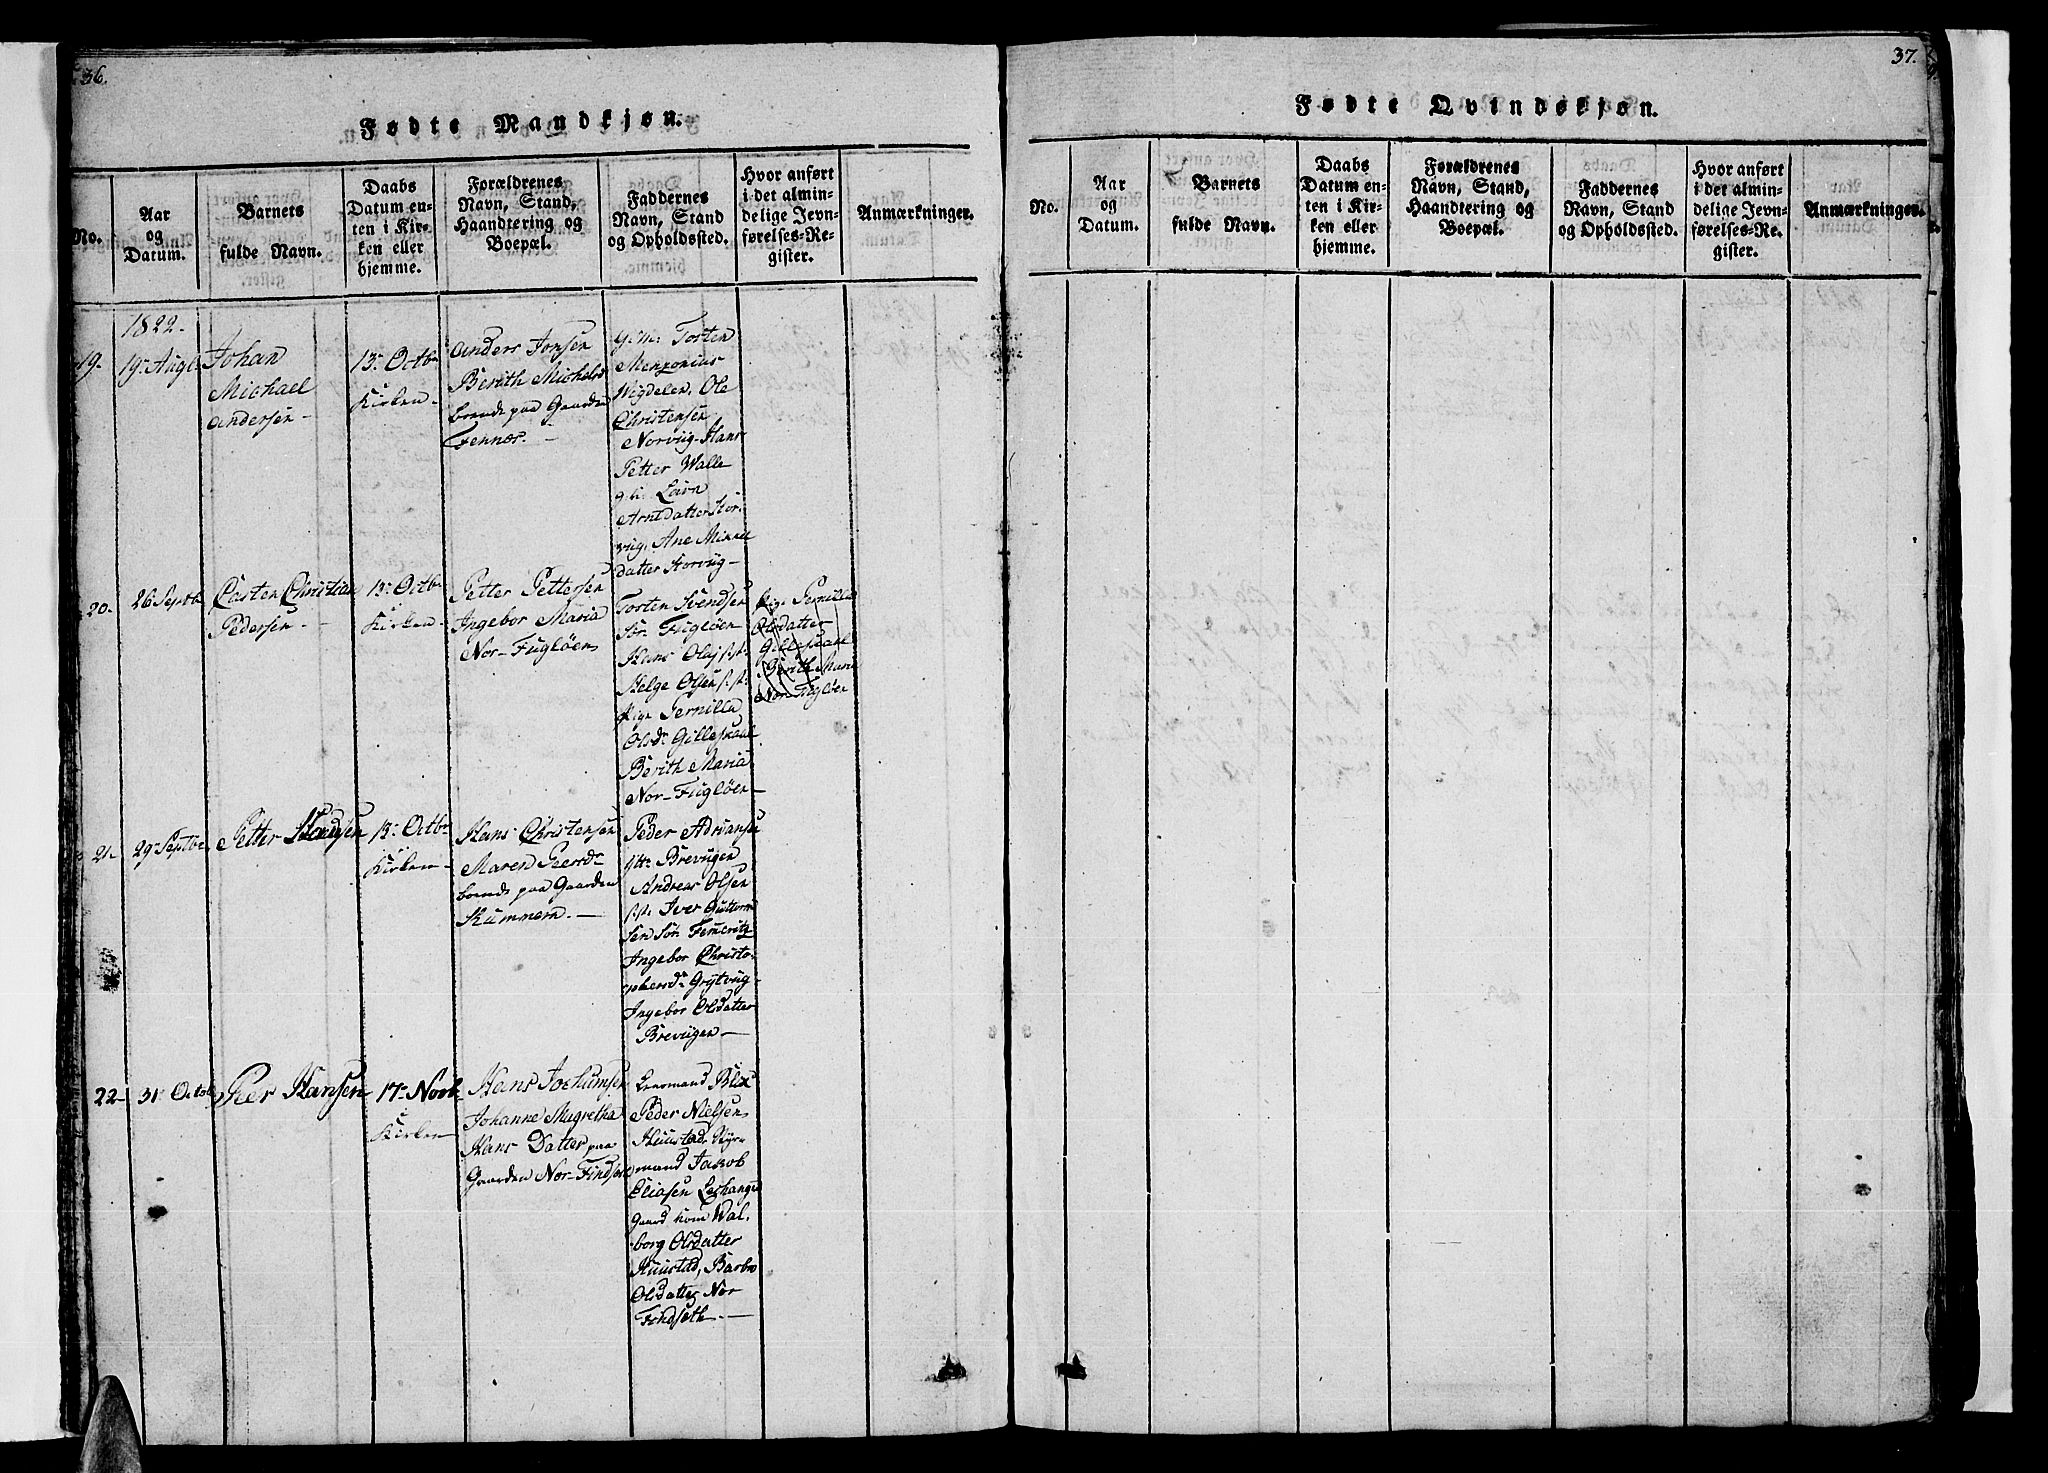 36.
Fødte Mandkjøn.
No.
Aar
og
Datum.
Barnets
fulde Navn.
Daabs
Datum en-
ten i Kir-
ken eller
hjemme.
Forældrenes
Navn, Stand,
Haandtering og
Boepæl.
Faddernes
Navn, Stand
og Opholdssted.
Hvor anført
i det almin-
delige Jevn-
førelses-Re-
gister.
Anmærkninger.
1822.
19.
19 Aug
Johan
Michael
Andersen
13 Octb
Kirken
Anders Jonsen
Berith Michels
boende paa Gaarden
Fennor.
Torsten
Menzonius
Wigdelen, Ole
Christensen
Norviig, Hans
Petter Walle
Lavn
Arntdatter Stor
viig, Ane Mikkel
datter Storviig
20
26 Septb
Carsten Christian
Pedersen
13 Octb
Kirken
Petter Pettersen
Ingebor Maria
Nor-Fugløen
Torsten Svendsen
Sør Fugløen
Hans Olaj
Helge Olsen
Pige Pernilla
Olsdr Gilleskaal
Berith Maria
Nor-Fugløen
Pige Pernilla
Olsdatter
Gilleskaal
Berith Maria
Nor-Fugløen
21
29 Septb
Petter Handsen
13 Octb
Kirken
Hans Christensen
Maren Peersdr
boende paa Gaarden
Stummern
Peder Adriansen
Breviigen
Andreas Olsen
Iver Guttorm
sen Sør
Ingebor Christo-
phersdr Grytviig
Ingebor Olsdatter
Breviigen
22
31 Octob
Peer Hansen
17 Novb
Kirken
Hans Jochumsen
Johanne Magretha
Hans Datter paa
Gaarden Nor-Findset
Lensmand Blix
Peder Nielsen
Huustad, Styr-
mand Jakob
Eliasen
Gaard kone Wal-
borg Olsdatter
Huustad, Barbro
Olsdatter Nor
Findseth
37.
Fødte Qvindekjøn.
No.
Aar
og
Datum.
Barnets
fulde Navn.
Daabs
Datum en-
ten i Kir-
ken eller
hjemme.
Forældrenes
Navn, Stand,
Haandtering og
Boepæl.
Faddernes
Navn, Stand
og Opholdssted.
Hvor anført
i det almin-
delige Jevn-
førelses-Re-
gister.
Anmærkninger.